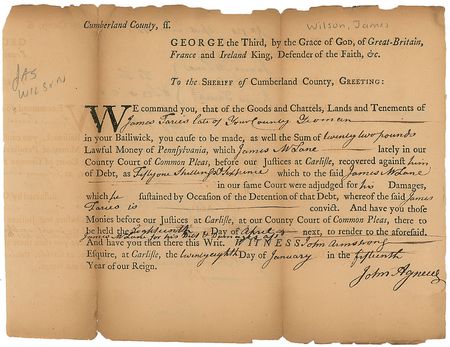 Cumberland County, ss.
Wilson, James
GEORGE the Third, by the Grace of God, of Great-Britain,
France and Ireland King, Defender of the Faith, &c.
JAS
WILSON
To the SHERIFF of Cumberland County, GREETING:
WE command you, that of the Goods and Chattels, Lands and Tenements of
James Taries late of Your County Yeoman
in your Bailiwick, you cause to be made, as well the Sum of twenty two pounds
Lawful Money of Pennsylvania, which James McLane lately in our
County Court of Common Pleas, before our Justices at Carlisle, recovered against him
of Debt, as Fifty one Shillings & Sixpence which to the said James McLane
in our same Court were adjudged for his Damages,
which he sustained by Occasion of the Detention of that Debt, whereof the said James
Taries is convict. And have you those
Monies before our Justices at Carlisle, at our County Court of Common Pleas, there to
be held the eighteenth Day of April next, to render to the aforesaid.
James McLane for his Debt & Damages
And have you then there this Writ. WITNESS John Armstrong
Esquire, at Carlisle, the twenty eighth Day of January in the fifteenth
Year of our Reign.
John Agnew